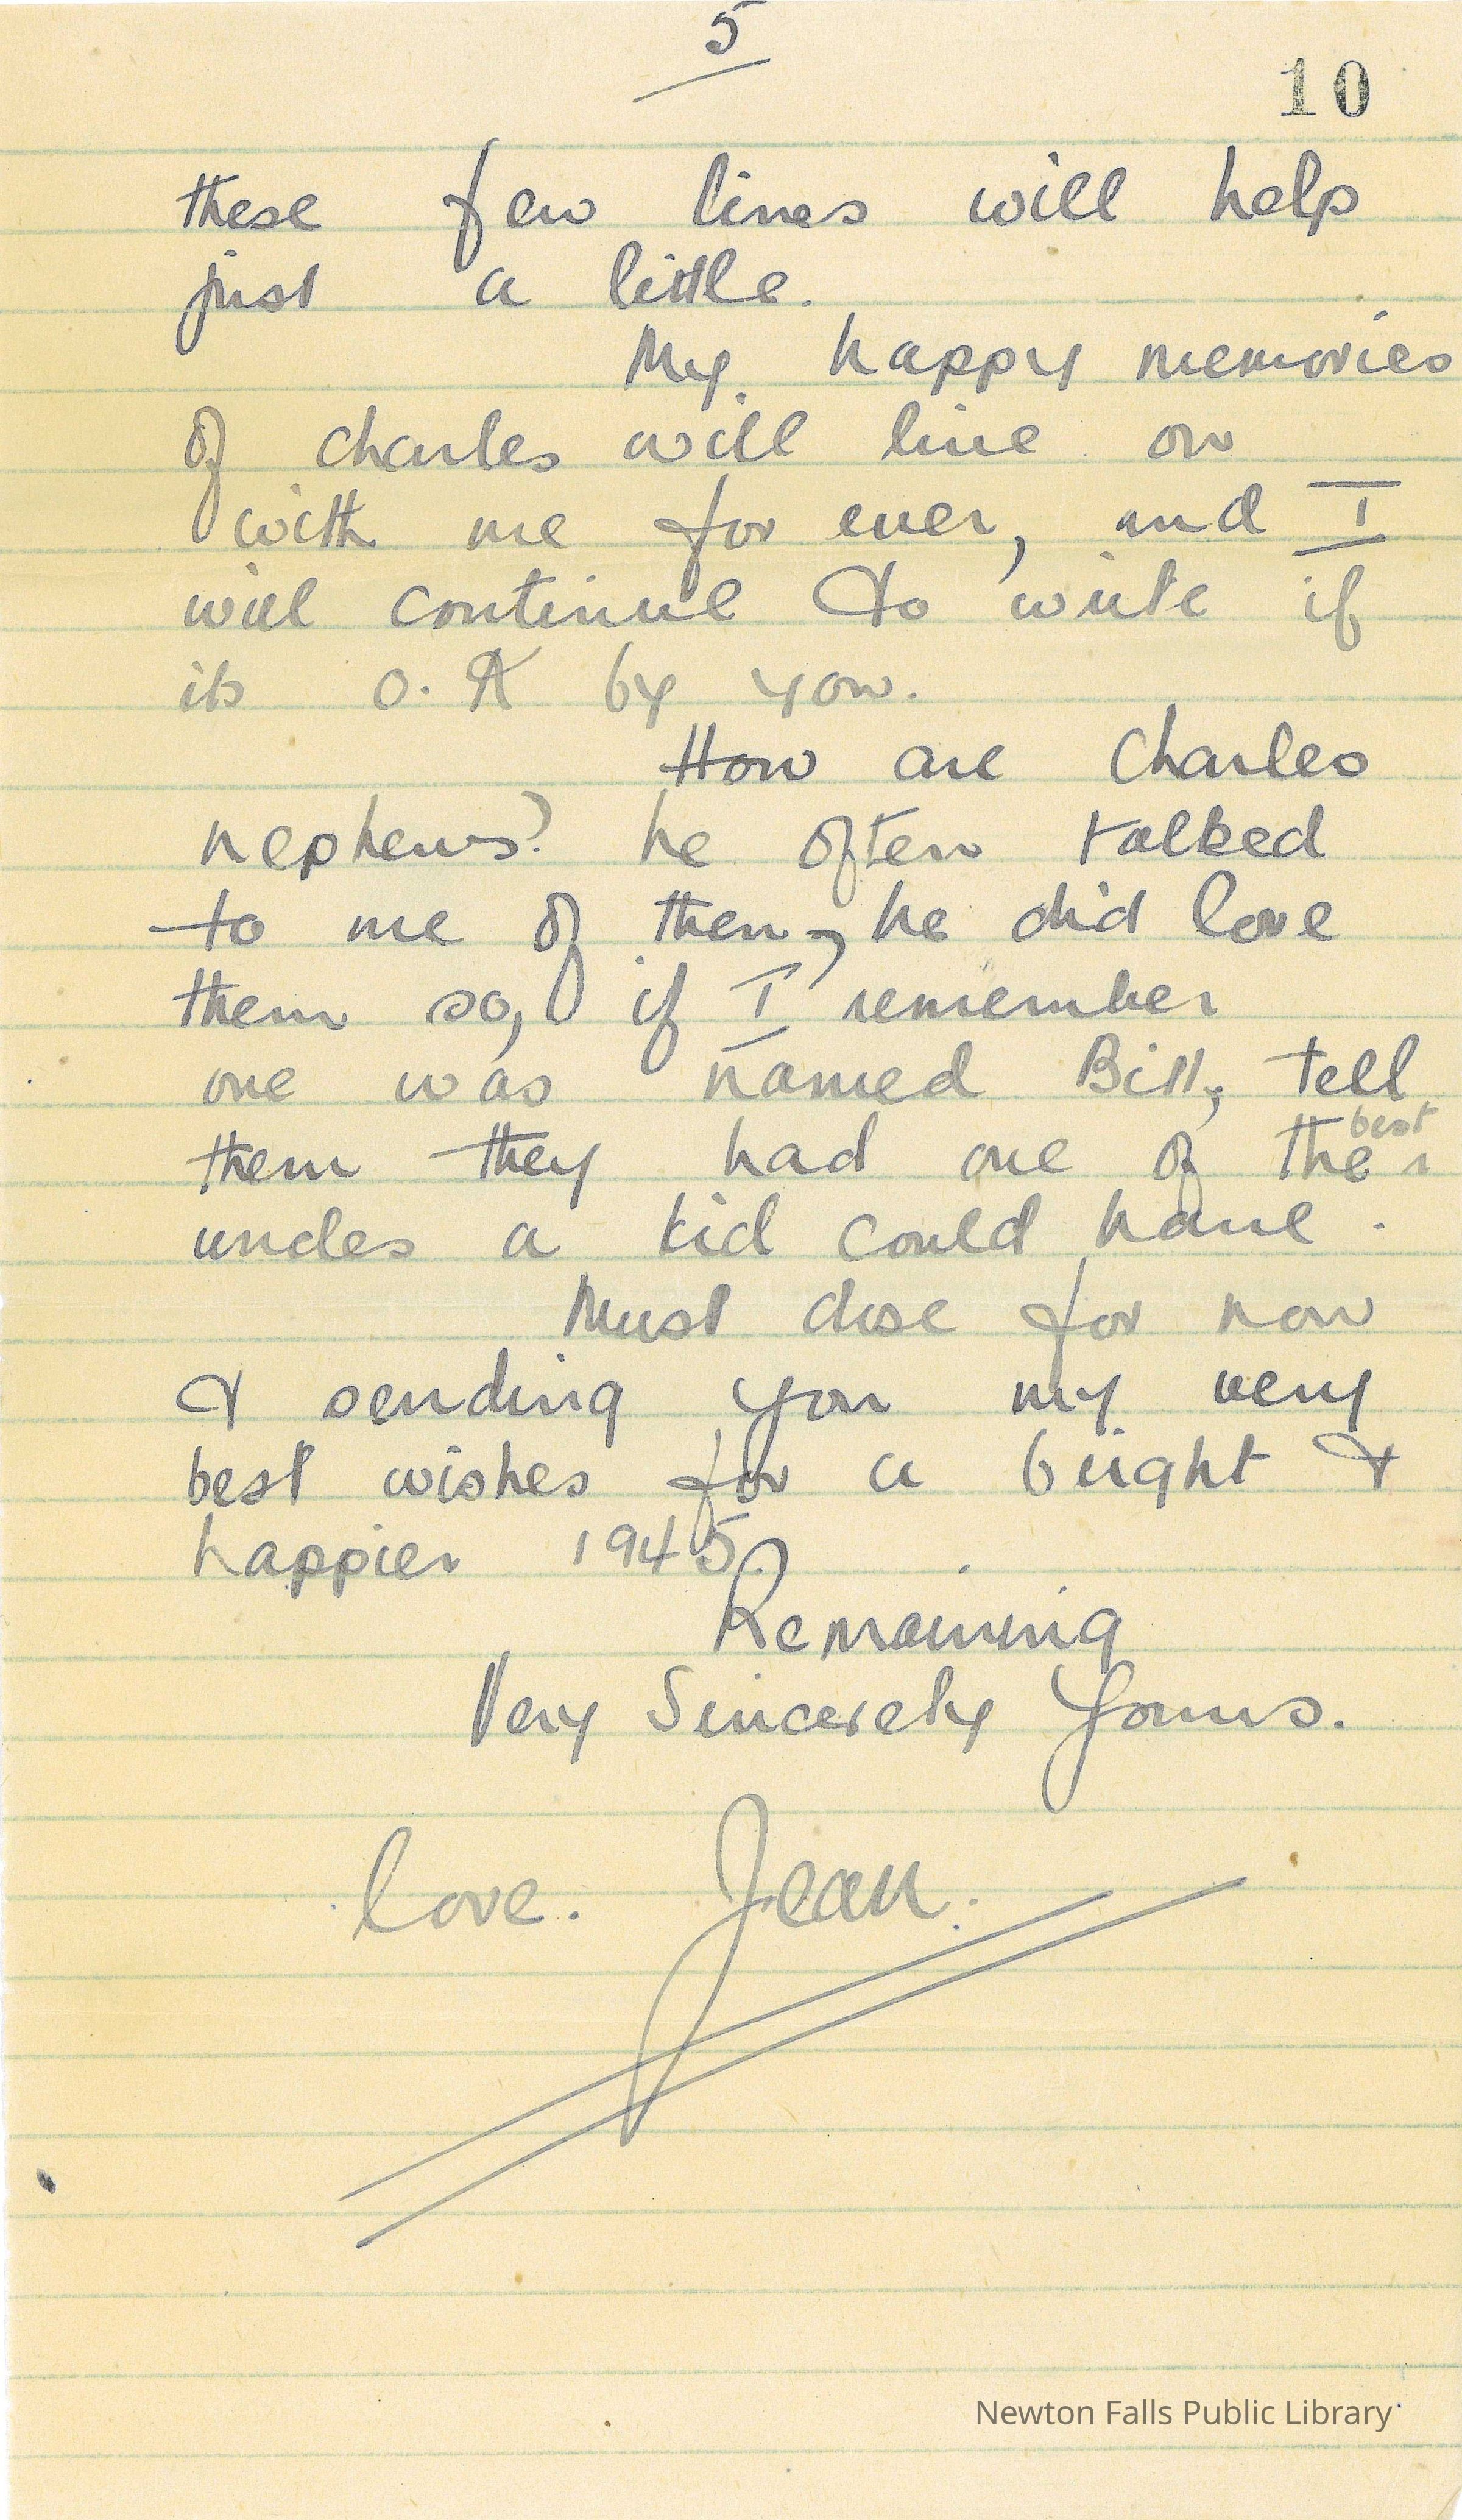 5
10
these few lines will help
just a little.
My happy memories
of Charles will live on
with me for ever, and I
will continue to write if
its O.K by you.
How are Charles
nephews? he often talked
to me of them, he did love
them so, if I remember
one was named Bill, tell
them they had one of the best
uncles a kid could have.
Must close for now
& sending you my very
best wishes for a bright &
happier 1945.
Remaining
Very Sincerely Yours.
love. Jean.
Newton Falls Public Library